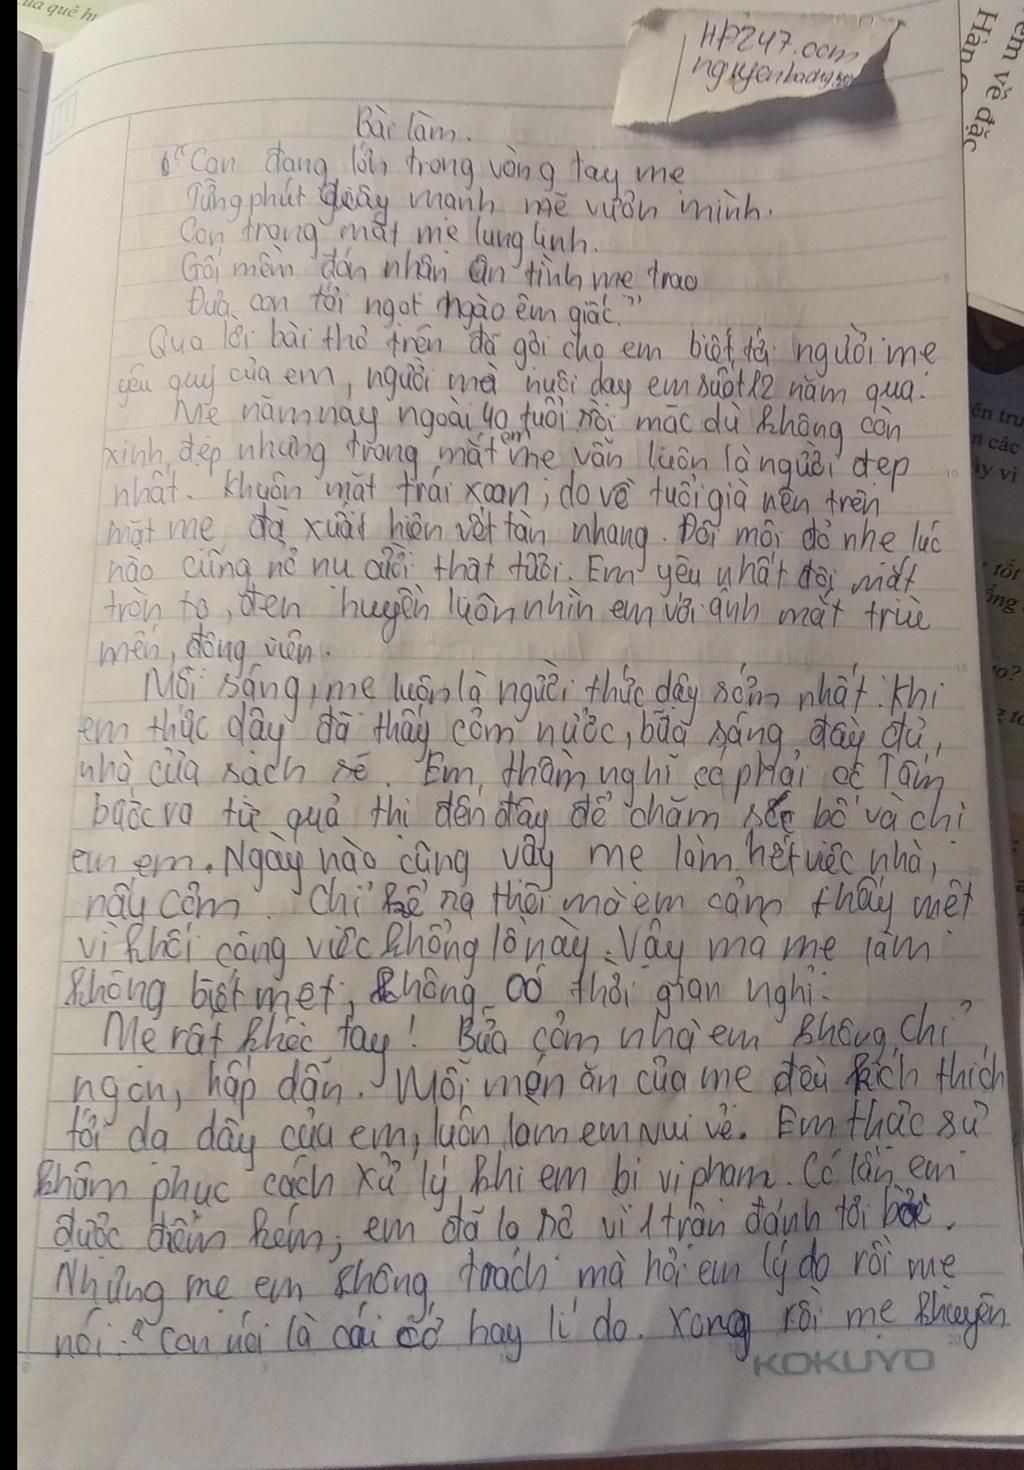 HP247.com
nguyenhadngse
Bài làm.
"Con đang lớn trong vòng tay mẹ
Từng phút giây mạnh mẽ vươn mình.
Con trong mắt mẹ lung linh.
Gối mềm đón nhận ân tình mẹ trao
Đưa con tới ngọt ngào êm giấc."
Qua lời bài thơ trên đã gợi cho em biết tới người mẹ
yêu quý của em, người mà nuôi dạy em suốt 12 năm qua.
Mẹ năm nay ngoài 40 tuổi rồi mặc dù không còn
xinh đẹp nhưng trong mắt em mẹ vẫn luôn là người đẹp
nhất. Khuôn mặt trái xoan, do về tuổi già nên trên
mặt mẹ đã xuất hiện vết tàn nhang. Đôi môi đỏ nhẹ lúc
nào cũng nở nụ cười thật tươi. Em yêu nhất đôi mắt
tròn to, đen huyền luôn nhìn em với ánh mắt trìu
mến, động viên.
Mỗi sáng, mẹ luôn là người thức dậy sớm nhất. Khi
em thức dậy đã thấy cơm nước, bữa sáng đầy đủ,
nhà cửa sạch sẽ. Em thầm nghĩ có phải cô Tấm
bước ra từ quả thị đến đây để chăm sóc bố và chị
em em. Ngày nào cũng vậy mẹ làm hết việc nhà,
nấu cơm. Chỉ kể ra thôi mà em cảm thấy mệt
vì khối công việc khổng lồ này. Vậy mà mẹ làm
không biết mệt, không có thời gian nghỉ.
Mẹ rất khéo tay! Bữa cơm nhà em không chỉ
ngon, hấp dẫn. Mỗi món ăn của mẹ đều kích thích
tới dạ dầy của em, luôn làm em vui vẻ. Em thực sự
khâm phục cách xử lý khi em bị vi phạm. Có lần em
được điểm kém, em đã lo sợ vì 1 trận đánh tơi bời.
Nhưng mẹ em không trách mà hỏi em lý do rồi mẹ
nói: "Con nói là cái cớ hay lí do. Xong rồi mẹ khuyên
KOKUYO